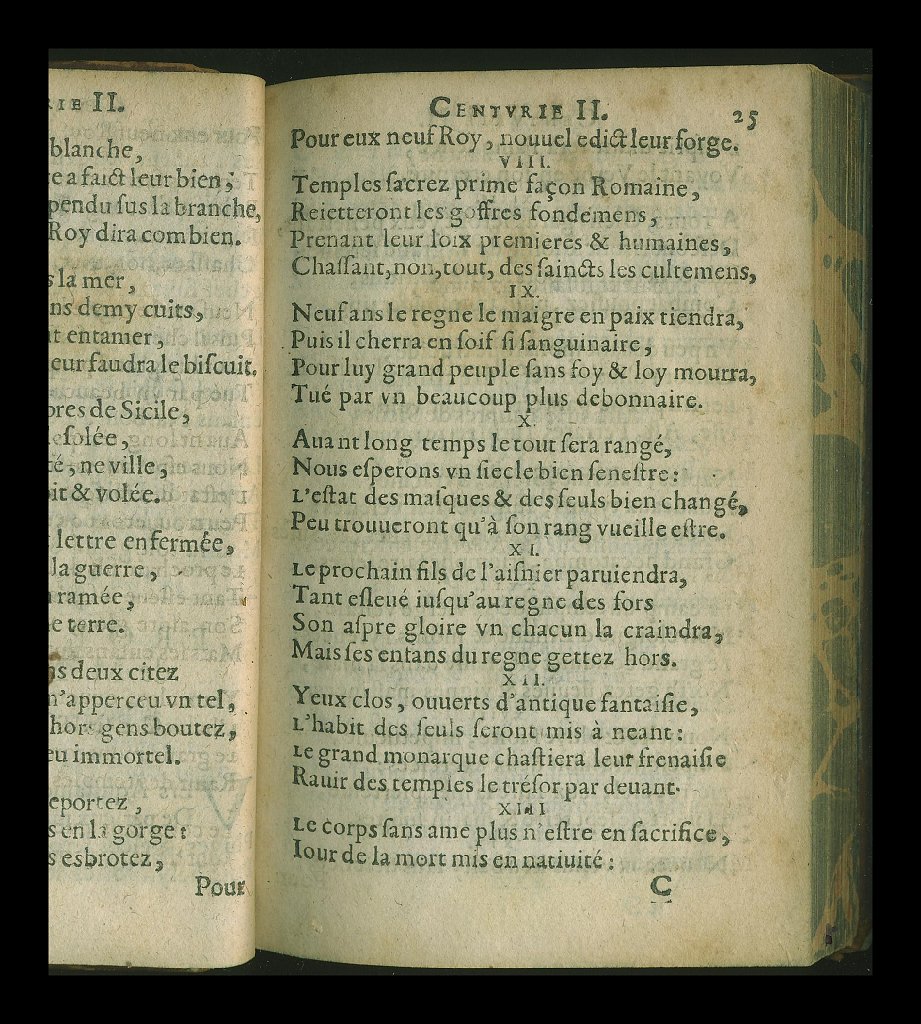 RIE II.
blanche,
e a faict leur bien;
pendu sus la branche,
Roy dira combien.
s la mer,
ns demy cuits,
t entamer,
eur faudra le biscuit.
res de Sicile,
solée,
té, ne ville,
it & volée.
lettre enfermée,
la guerre,
ramée,
e terre.
ns deux citez
n'apperceu vn tel,
hors gens boutez,
eu immortel.
eportez,
s en la gorge:
s esbrotez,
Pour
CENTVRIE II. 25
Pour eux neuf Roy, nouuel edict leur forge.
VIII.
Temples sacrez prime façon Romaine,
Reietteront les goffres fondemens,
Prenant leur loix premieres & humaines,
Chassant, non, tout, des saincts les cultemens,
IX.
Neuf ans le regne le maigre en paix tiendra,
Puis il cherra en soif si sanguinaire,
Pour luy grand peuple sans foy & loy mourra,
Tué par vn beaucoup plus debonnaire.
X.
Auant long temps le tout sera rangé,
Nous esperons vn siecle bien senestre:
L'estat des masques & des seuls bien changé,
Peu trouueront qu'à son rang vueille estre.
XI.
Le prochain fils de l'aisnier paruiendra,
Tant esleué iusqu'au regne des fors
Son aspre gloire vn chacun la craindra,
Mais ses enfans du regne gettez hors.
XII.
Yeux clos, ouuerts d'antique fantaisie,
L'habit des seuls seront mis à neant:
Le grand monarque chastiera leur frenaisie
Rauir des temples le trésor par deuant.
XIII
Le corps sans ame plus n'estre en sacrifice,
Iour de la mort mis en natiuité:
C